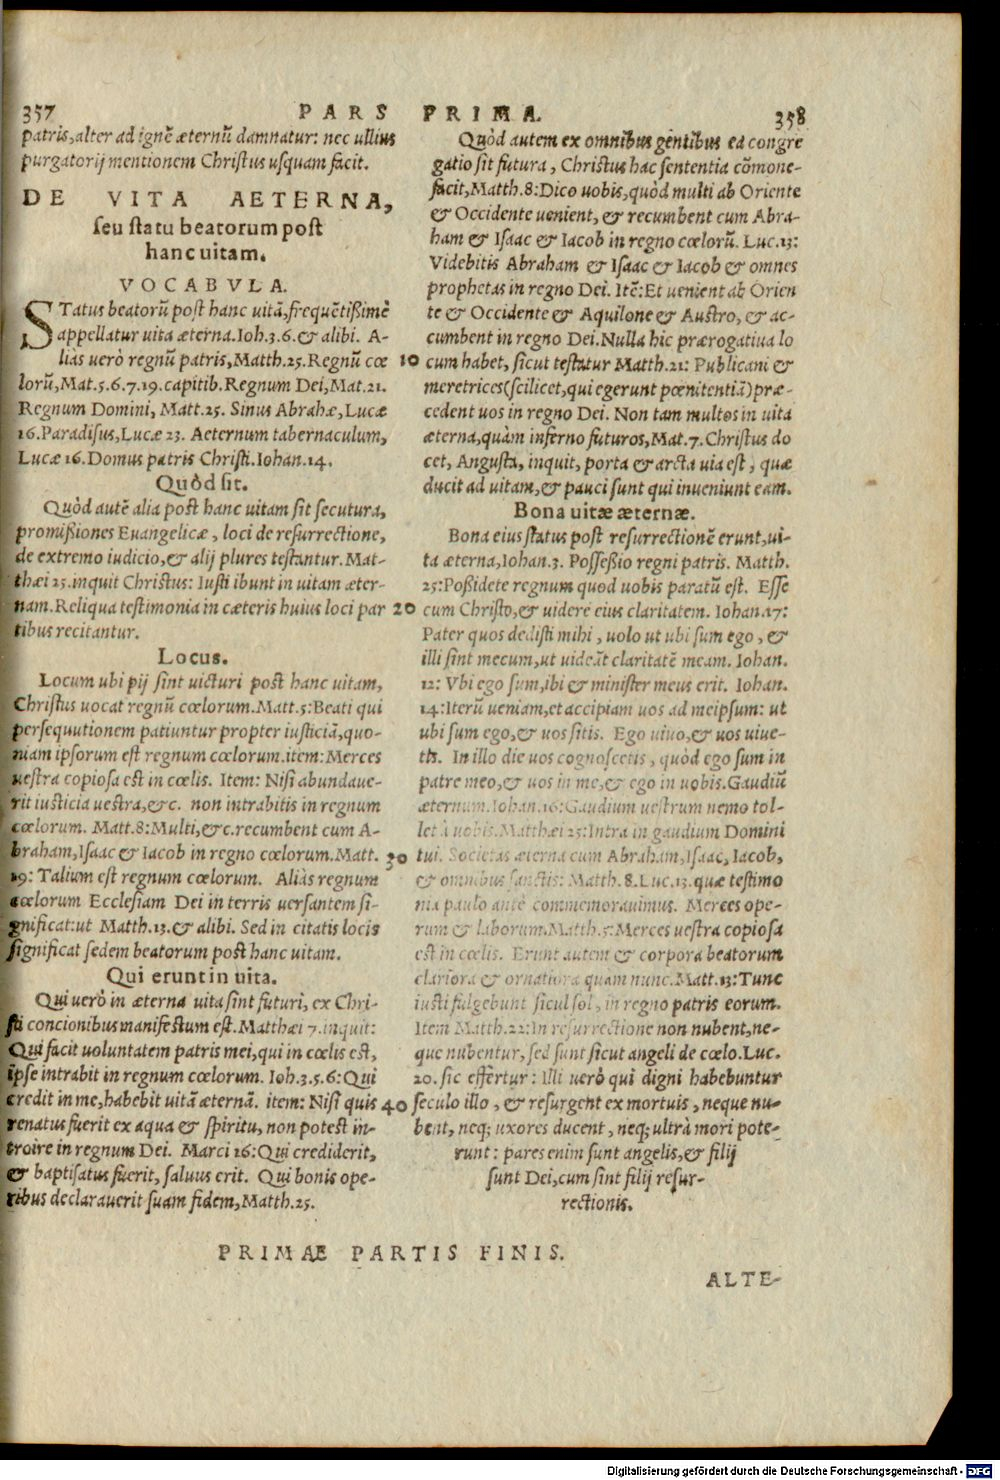 357 PARS PRIMA. 358
patris, alter ad ignē æternū damnatur: nec ullius
purgatorij mentionem Christus usquam facit.
DE VITA AETERNA,
seu statu beatorum post
hanc uitam.
VOCABVLA.
STatus beatorū post hanc uitā, frequētißimè
appellatur uita æterna. Ioh.3.6. & alibi. A-
liàs uerò regnū patris, Matth.25. Regnū cœ
lorū, Mat.5.6.7.19. capitib. Regnum Dei, Mat.21.
Regnum Domini, Matt.25. Sinus Abrahæ, Lucæ
16. Paradisus, Lucæ 23. Aeternum tabernaculum,
Lucæ 16. Domus patris Christi. Iohan.14.
Quòd sit.
Quòd autē alia post hanc uitam sit secutura,
promißiones Euangelicæ, loci de resurrectione,
de extremo iudicio, & alij plures testantur. Mat-
thæi 25. inquit Christus: Iusti ibunt in uitam æter-
nam. Reliqua testimonia in cæteris huius loci par
tibus recitantur.
Locus.
Locum ubi pij sint uicturi post hanc uitam,
Christus uocat regnū cœlorum. Matt.5: Beati qui
persequutionem patiuntur propter iusticiā, quo-
niam ipsorum est regnum cœlorum. item: Merces
uestra copiosa est in cœlis. Item: Nisi abundaue-
rit iusticia uestra, &c. non intrabitis in regnum
cœlorum. Matt.8: Multi, &c. recumbent cum A-
braham, Isaac & Iacob in regno cœlorum. Matt.
19: Talium est regnum cœlorum. Aliàs regnum
cœlorum Ecclesiam Dei in terris uersantem si-
gnificat: ut Matth.13. & alibi. Sed in citatis locis
significat sedem beatorum post hanc uitam.
Qui erunt in uita.
Qui uerò in æterna uita sint futuri, ex Chri-
sti concionibus manifestum est. Matthæi 7. inquit:
Qui facit uoluntatem patris mei, qui in cœlis est,
ipse intrabit in regnum cœlorum. Ioh.3.5.6: Qui
credit in me, habebit uitā æternā. item: Nisi quis
renatus fuerit ex aqua & spiritu, non potest in-
troire in regnum Dei. Marci 16: Qui crediderit,
& baptisatus fuerit, saluus erit. Qui bonis ope-
ribus declarauerit suam fidem, Matth.25.
Quòd autem ex omnibus gentibus ea congre
gatio sit futura, Christus hac sententia cōmone-
facit, Matth.8: Dico uobis, quòd multi ab Oriente
& Occidente uenient, & recumbent cum Abra-
ham & Isaac & Iacob in regno cœlorū. Luc.13:
Videbitis Abraham & Isaac & Iacob & omnes
prophetas in regno Dei. Itē: Et uenient ab Orien
te & Occidente & Aquilone & Austro, & ac-
cumbent in regno Dei. Nulla hic prærogatiua lo
10 cum habet, sicut testatur Matth.21: Publicani &
meretrices (scilicet, qui egerunt pœnitentiā) præ-
cedent uos in regno Dei. Non tam multos in uita
æterna, quàm inferno futuros, Mat.7. Christus do
cet, Angusta, inquit, porta & arcta uia est, quæ
ducit ad uitam, & pauci sunt qui inueniunt eam.
Bona uitæ æternæ.
Bona eius status post resurrectionē erunt, ui-
ta æterna, Iohan.3. Posseßio regni patris. Matth.
25: Poßidete regnum quod uobis paratū est. Esse
20 cum Christo, & uidere eius claritatem. Iohan.17:
Pater quos dedisti mihi, uolo ut ubi sum ego, &
illi sint mecum, ut uideāt claritatē meam. Iohan.
12: Vbi ego sum, ibi & minister meus erit. Iohan.
14: Iterū ueniam, et accipiam uos ad meipsum: ut
ubi sum ego, & uos sitis. Ego uiuo, & uos uiue-
tis. In illo die uos cognoscetis, quòd ego sum in
patre meo, & uos in me, & ego in uobis. Gaudiū
æternum. Iohan.16: Gaudium uestrum nemo tol-
let à uobis. Matthæi 25: Intra in gaudium Domini
30 tui. Societas æterna cum Abraham, Isaac, Iacob,
& omnibus sanctis: Matth.8. Luc.13. quæ testimo
nia paulo antè commemorauimus. Merces ope-
rum & laborum. Matth.5: Merces uestra copiosa
est in cœlis. Erunt autem & corpora beatorum
clariora & ornatiora quam nunc. Matt.13: Tunc
iusti fulgebunt sicut sol, in regno patris eorum.
Item Matth.22: In resurrectione non nubent, ne-
que nubentur, sed sunt sicut angeli de cœlo. Luc.
20. sic effertur: Illi uerò qui digni habebuntur
40 seculo illo, & resurgent ex mortuis, neque nu-
bent, neq; uxores ducent, neq; ultrà mori pote-
runt: pares enim sunt angelis, & filij
sunt Dei, cum sint filij resur-
rectionis.
PRIMAE PARTIS FINIS.
ALTE-
Digitalisierung gefördert durch die Deutsche Forschungsgemeinschaft - DFG